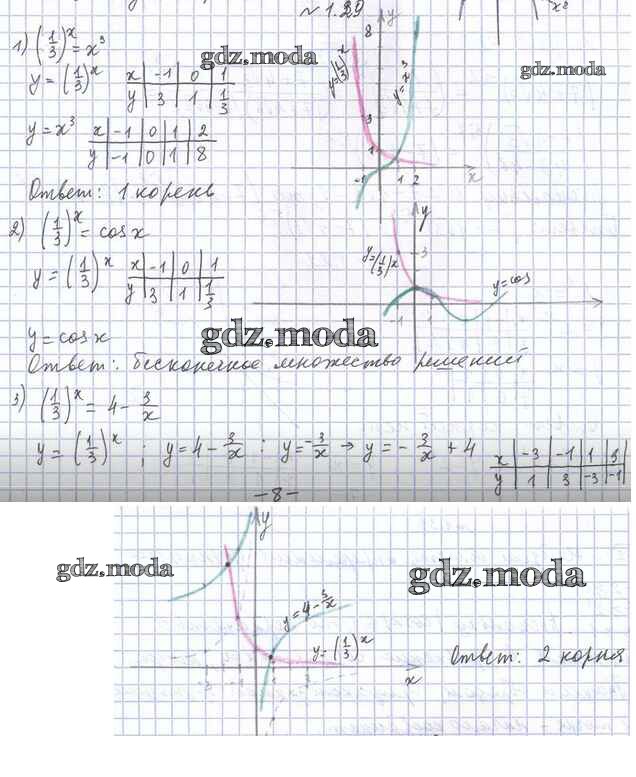 № 1.29
1) (1/3)^x = x³
y = (1/3)^x
x | -1 | 0 | 1
y | 3 | 1 | 1/3
y = x³
x | -1 | 0 | 1 | 2
y | -1 | 0 | 1 | 8
Ответ: 1 корень
y
8
3
1
-1 1 2
x
y=(1/3)^x
y=x³
gdz.moda
gdz.moda
2) (1/3)^x = cos x
y = (1/3)^x
x | -1 | 0 | 1
y | 3 | 1 | 1/3
y = cos x
y
3
-1 1
y=(1/3)^x
y=cos
gdz.moda
Ответ: бесконечное множество решений
3) (1/3)^x = 4 - 3/x
y = (1/3)^x ; y = 4 - 3/x : y = -3/x → y = - 3/x + 4
x | -3 | -1 | 1 | 3
y | 1 | 3 | -3 | -1
-8-
y
gdz.moda
gdz.moda
y=4-3/x
y=(1/3)^x
-3 -1 1
x
Ответ: 2 корня